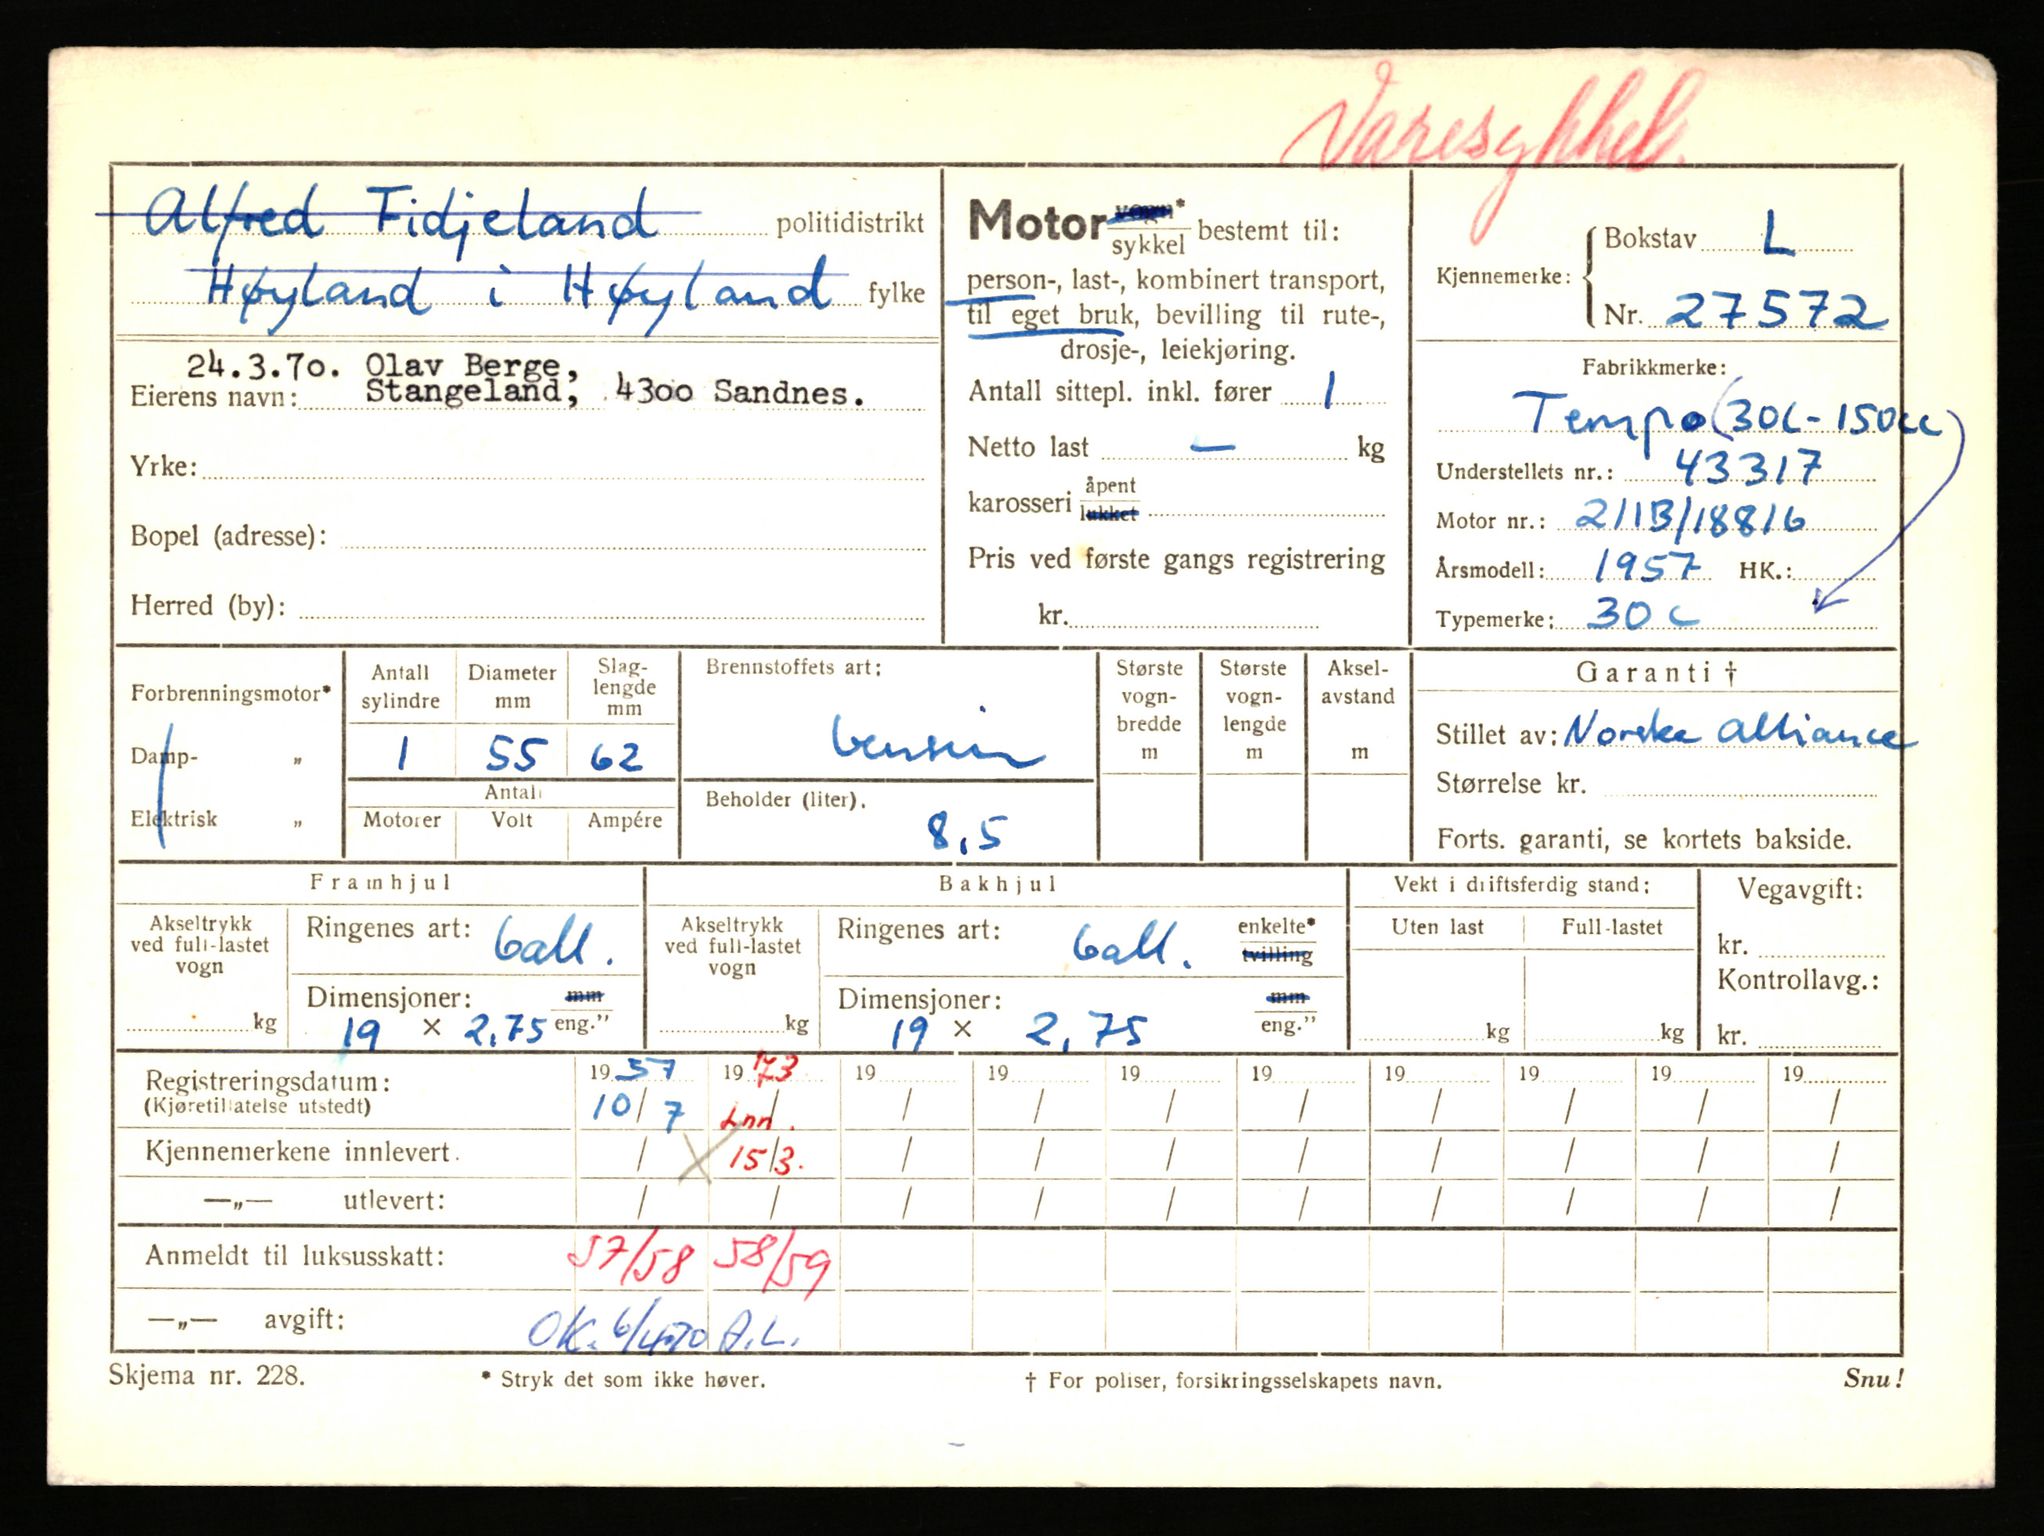 Varesykkel.
Alfred Fidjeland politidistrikt
Høyland i Høyland fylke
24.3.70. Olav Berge,
Eierens navn: Stangeland, 4300 Sandnes.
Yrke:
Bopel (adresse):
Herred (by):
Motor vogn*
sykkel bestemt til:
person-, last-, kombinert transport,
til eget bruk, bevilling til rute-,
drosje-, leiekjøring.
Antall sittepl. inkl. fører 1
Netto last — kg
karosseri åpent
lukket
Pris ved første gangs registrering
kr.
Kjennemerke: Bokstav L
Nr. 27572
Fabrikkmerke:
Tempo (30C-150cc)
Understellets nr.: 43317
Motor nr.: 211B/18816
Årsmodell: 1957 HK.:
Typemerke: 30 C
Forbrenningsmotor*
Damp- „
Elektrisk „
Antall sylindre
1
Diameter mm
55
Slag-lengde mm
62
Antall
Motorer Volt Ampére
Brennstoffets art:
bensin
Beholder (liter).
8,5
Største vogn-bredde m
Største vogn-lengde m
Aksel-avstand m
Garanti †
Stillet av: Norske Alliance
Størrelse kr.
Forts. garanti, se kortets bakside.
Framhjul
Akseltrykk ved full-lastet vogn
kg
Ringenes art: ball.
Dimensjoner: mm
19 × 2,75 eng.”
Bakhjul
Akseltrykk ved full-lastet vogn
kg
Ringenes art: ball. enkelte*
tvilling
Dimensjoner: mm
19 × 2,75 eng.”
Vekt i driftsferdig stand:
Uten last Full-lastet
kg kg
Vegavgift:
kr.
Kontrollavg.:
kr.
Registreringsdatum: 19 57 19 73 19 19 19 19 19 19 19 19
(Kjøretillatelse utstedt) 10/7 Inn. / / / / / / / / /
Kjennemerkene innlevert. / X 15/3. / / / / / / / /
—„— utlevert: / / / / / / / / / /
Anmeldt til luksusskatt: 57/58 58/59
—„— avgift: OK. 6/4-70 A.L.
Skjema nr. 228. * Stryk det som ikke høver. † For poliser, forsikringsselskapets navn. Snu!